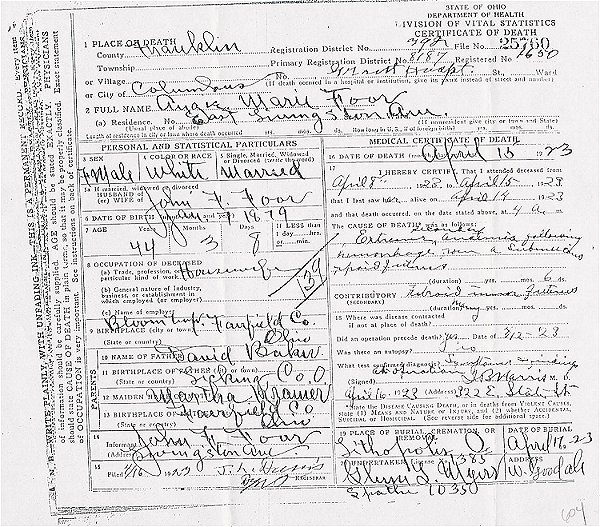 STATE OF OHIO
DEPARTMENT OF HEALTH
DIVISION OF VITAL STATISTICS
CERTIFICATE OF DEATH
1 PLACE OF DEATH
County Franklin
Registration District No. 392 File No. 25760
Township
Primary Registration District No. 8187 Registered No. 1650
or Village
No. Grant Hospt. St., Ward
(If death occurred in a hospital or institution, give its NAME instead of street and number)
or City of Columbus
2 FULL NAME Angie Marie Foor
(a) Residence. No. East Livingston Ave.
(Usual place of abode) (If nonresident give city or town and State)
Length of residence in city or town where death occurred yrs. mos. ds. How long in U. S., if of foreign birth? yrs. mos. ds.
PERSONAL AND STATISTICAL PARTICULARS
3 SEX
4 COLOR OR RACE
5 Single, Married, Widowed or Divorced (write the word)
White Married
5a If married, widowed or divorced
HUSBAND of
(or) WIFE of John F. Foor
6 DATE OF BIRTH (month, day and year) 1879
7 AGE Years Months Days If LESS than
1 day, hrs.
or min.
44 3 8
8 OCCUPATION OF DECEASED
(a) Trade, profession, or
particular kind of work Housewife
(b) General nature of Industry,
business, or establishment in
which employed (or employer)
(c) Name of employer
9 BIRTHPLACE (city or town) Fairfield Co.
(State or country) Ohio
PARENTS
10 NAME OF FATHER David Baker
11 BIRTHPLACE OF FATHER (city or town)
(State or country) Licking Co. O.
12 MAIDEN Martha Kramer
13 BIRTHPLACE Fairfield Co
(State or country) Ohio
14
Informant John F. Foor
Livingston Ave
15
Filed 4/16 1923
REGISTRAR
MEDICAL CERTIFICATE OF DEATH
16 DATE OF DEATH April 15 1923
17
I HEREBY CERTIFY, That I attended deceased
from April 8th 1923 to April 15 1923
that I last saw her alive on April 14 1923
and that death occurred, on the date stated above, at 4 a m.
The CAUSE OF DEATH was as follows:
Extreme anaemia following
hemorrhage from a
(duration) yrs. mos. 6 ds.
CONTRIBUTORY
(SECONDARY)
(duration) yrs. mos. ds.
18 Where was disease contracted
if not at place of death?
Did an operation precede death? yes Date of 3/12-23
Was there an autopsy? no
What test confirmed diagnosis? Symptoms &
operation
(Signed) Harris M. D.
April 16, 1923 (Address) 322 E State St
State the DISEASE CAUSING DEATH, or in deaths from VIOLENT CAUSES,
state (1) MEANS AND NATURE OF INJURY, and (2) whether ACCIDENTAL,
SUICIDAL or HOMICIDAL. (See reverse side for additional space)
19 PLACE OF BURIAL, CREMATION, OR REMOVAL
DATE OF BURIAL
Lithopolis O April 17-23
20 UNDERTAKER, License No. 1385
Address
Myers W. Goodale
10350
N. B. WRITE PLAINLY, WITH UNFADING INK—THIS IS A PERMANENT RECORD. Every item
of information should be carefully supplied. AGE should be stated EXACTLY. PHYSICIANS
should state CAUSE OF DEATH in plain terms, so that it may be properly classified. Exact statement
of OCCUPATION is very important. See instructions on back of certificate.